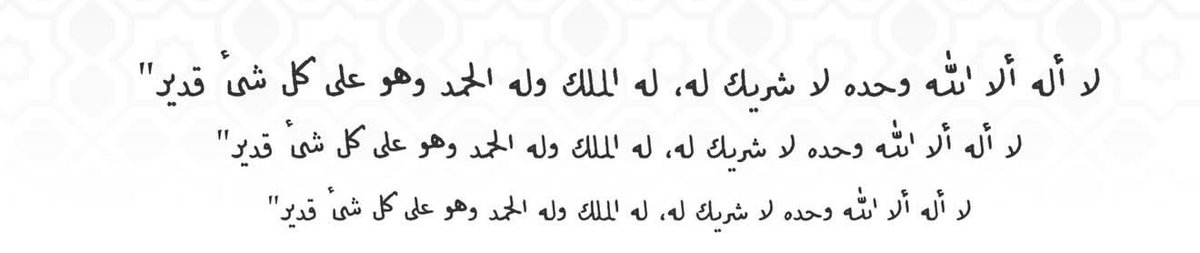 لا أله ألا الله وحده لا شريك له، له الملك وله الحمد وهو على كل شىأ قدير"
لا أله ألا الله وحده لا شريك له، له الملك وله الحمد وهو على كل شىأ قدير"
لا أله ألا الله وحده لا شريك له، له الملك وله الحمد وهو على كل شىأ قدير"